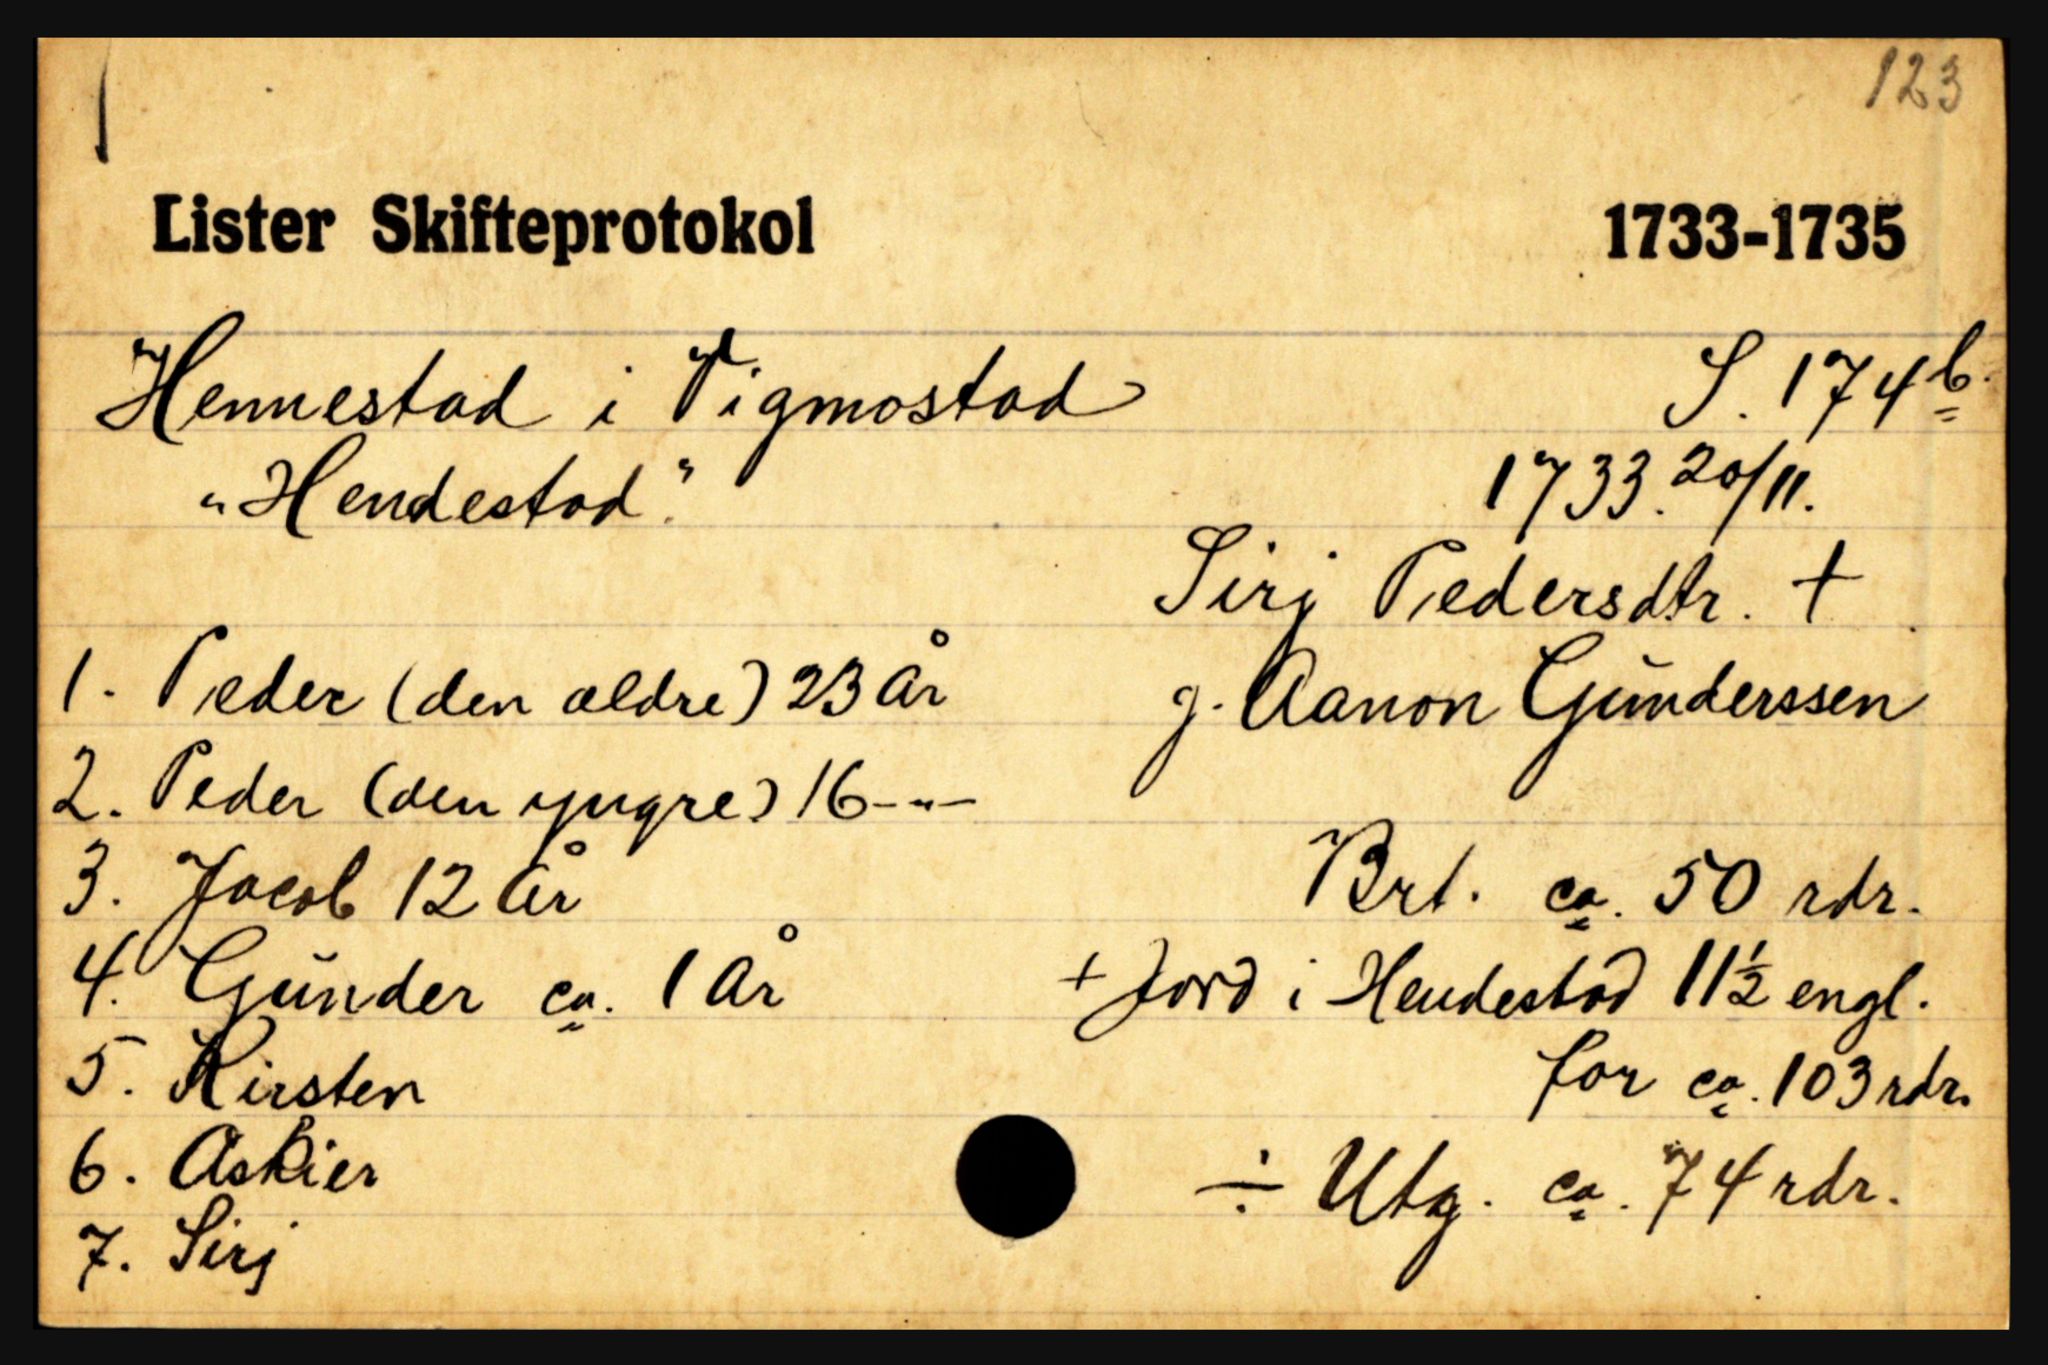 123
Lister Skifteprotokol 1733-1735
Hennestad i Vigmostad S. 174b.
"Hendestad". 1733. 20/11.
Sirj Pedersdtr. +
1. Peder (den ældre) 23 år g. Aanon Gunderssen
2. Peder (den yngre) 16 -"-
3. Jacob 12 år Brt. ca. 50 rdr.
4. Gunder ca. 1 år + Jord i Hendestad 11½ engl.
5. Kirsten for ca. 103 rdr.
6. Askier ÷ Utg. ca. 74 rdr.
7. Sirj